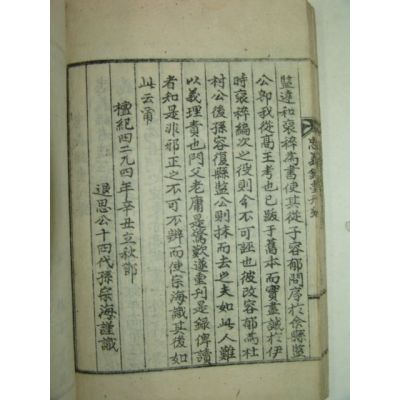 監達和裒稡爲書使其從子容郁問序於余縣監
公卽我從高王考也已跋于舊本而實盡誠於伊
時裒稡編次之役則今不可誣也彼改容郁爲杜
村公後孫容復縣監公則抹而去之夫如此人難
以義理責也門父老庸是驚歎遂重刊是錄俾讀
者知是非邪正之不可不辨而使宗海識其後如
此云爾
檀紀四二九四年辛丑立秋節
退思公十四代孫宗海謹識